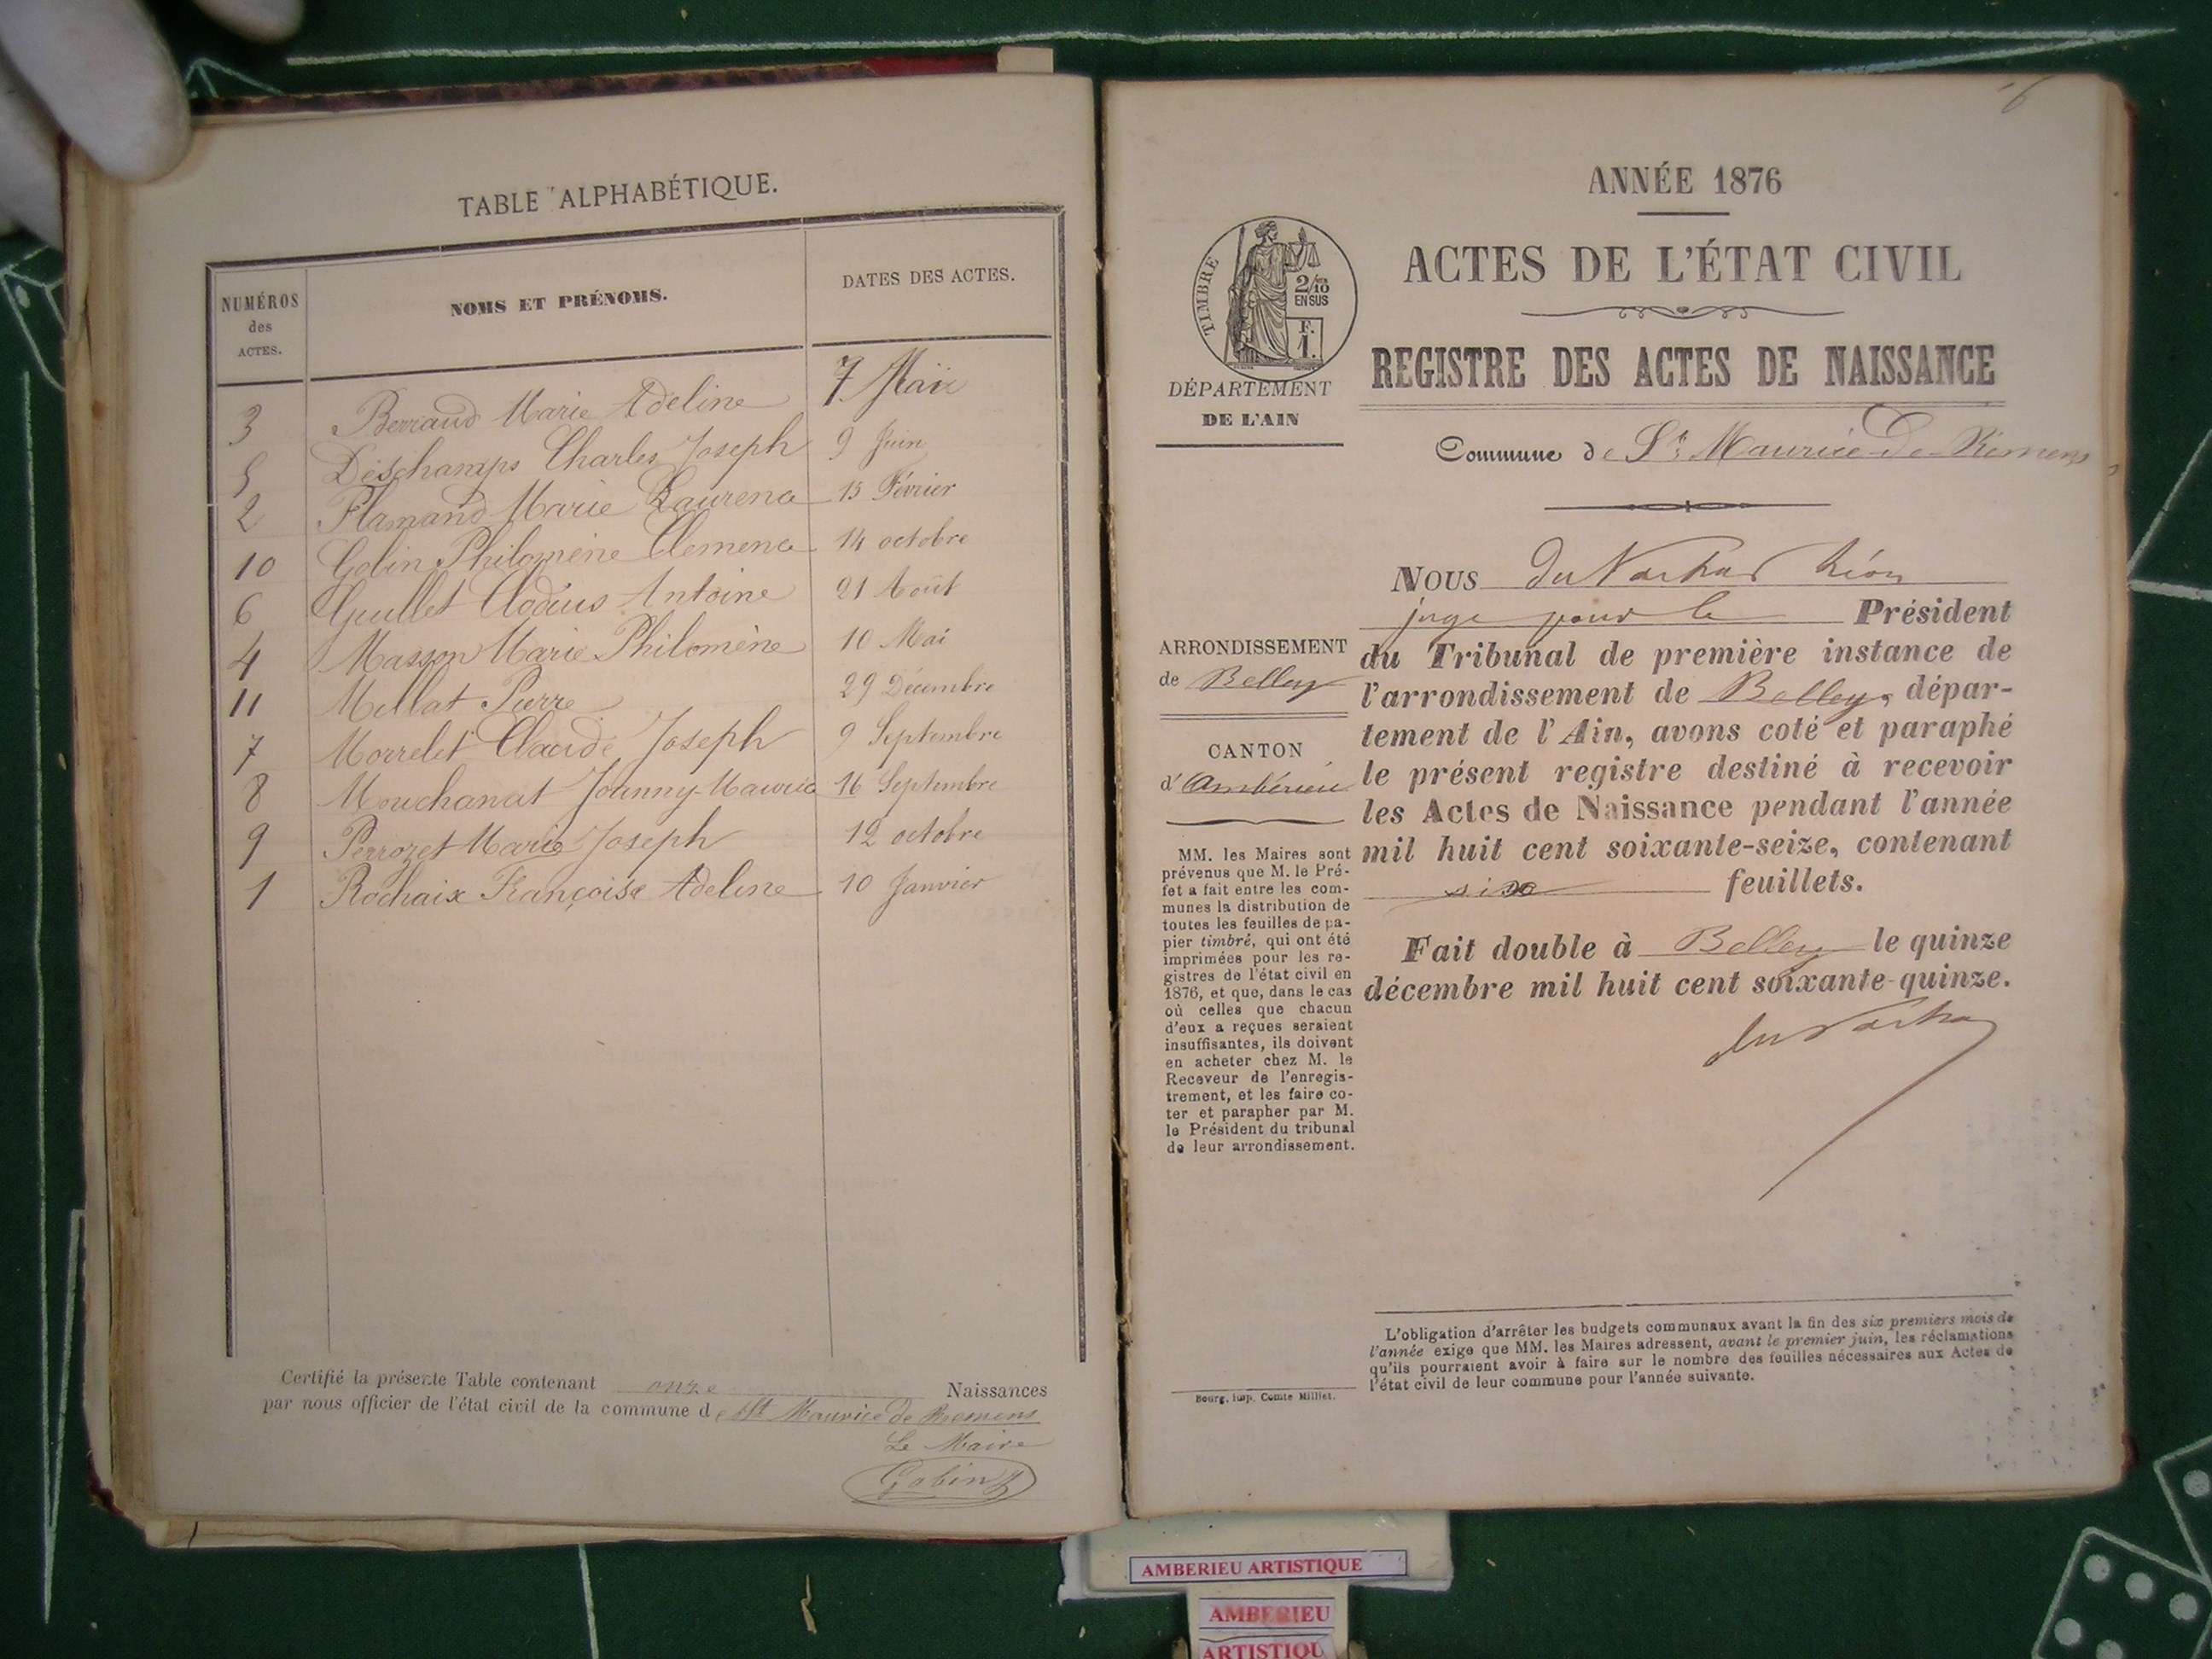 TABLE ALPHABÉTIQUE.
NUMÉROS des ACTES. NOMS ET PRÉNOMS. DATES DES ACTES.
3 Berraud Marie Adeline 7 Mai
5 Deschamps Charles Joseph 9 Juin
2 Flamand Marie Laurence 15 Février
10 Gobin Philomène Clemence 14 octobre
6 Guillet Clodius Antoine 21 Août
4 Masson Marie Philomène 10 Mai
11 Millat Pierre 29 Décembre
7 Morrelet Claude Joseph 9 Septembre
8 Mouchanat Joanny Maurice 16 Septembre
9 Perrozet Marie Joseph 12 octobre
1 Rochaix Françoise Adeline 10 Janvier
Certifié la présente Table contenant onze Naissances
par nous officier de l'état civil de la commune de St Maurice de Remens
Le Maire
Gobin
ANNÉE 1876
TIMBRE
2/10
EN SUS
F.
1.
ACTES DE L'ÉTAT CIVIL
REGISTRE DES ACTES DE NAISSANCE
DÉPARTEMENT
DE L'AIN
Commune de St Maurice de Rémens
ARRONDISSEMENT
de Belley
CANTON
d'Ambérieu
MM. les Maires sont
prévenus que M. le Pré-
fet a fait entre les com-
munes la distribution de
toutes les feuilles de pa-
pier timbré, qui ont été
imprimées pour les re-
gistres de l'état civil en
1876, et que, dans le cas
où celles que chacun
d'eux a reçues seraient
insuffisantes, ils doivent
en acheter chez M. le
Receveur de l'enregis-
trement, et les faire co-
ter et parapher par M.
le Président du tribunal
de leur arrondissement.
NOUS
juge pour le Président
du Tribunal de première instance de
l'arrondissement de Belley, dépar-
tement de l'Ain, avons coté et paraphé
le présent registre destiné à recevoir
les Actes de Naissance pendant l'année
mil huit cent soixante-seize, contenant
six feuillets.
Fait double à Belley le quinze
décembre mil huit cent soixante-quinze.
L'obligation d'arrêter les budgets communaux avant la fin des six premiers mois de
l'année exige que MM. les Maires adressent, avant le premier juin, les réclamations
qu'ils pourraient avoir à faire sur le nombre des feuilles nécessaires aux Actes de
l'état civil de leur commune pour l'année suivante.
Bourg, imp. Comte Milliet.
AMBERIEU ARTISTIQUE
AMBERIEU
ARTISTIQU